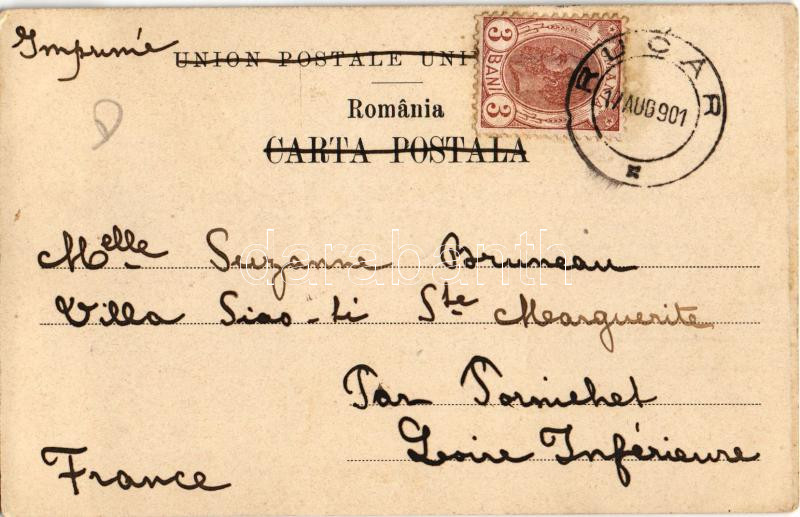 Imprimé
UNION POSTALE UNI
3 BANI 3
România
17 AUG 901
CARTA POSTALA
Melle Suzanne Bruneau
Villa Siao-ti Ste Marguerite
Par Pornichet
Loire Inférieure
France
darabanth